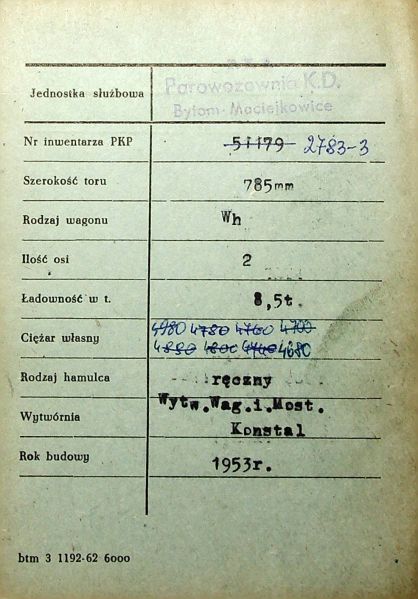 Jednostka służbowa
Parowozownia K.D.
Bytom-Maciejkowice
Nr inwentarza PKP 51179 2783-3
Szerokość toru 785mm
Rodzaj wagonu Wh
Ilość osi 2
Ładowność w t. 8,5t.
4980 4780 4760 4700
Ciężar własny
4680
Rodzaj hamulca ręczny
Wytw.Wag.i.Most.
Wytwórnia
Konstal
Rok budowy 1953r.
btm 3 1192-62 6000